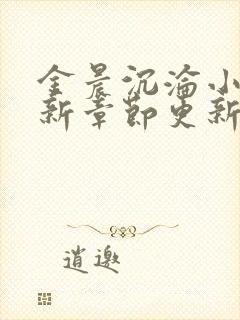 金晨沉沦小
新章节更新
逍邀